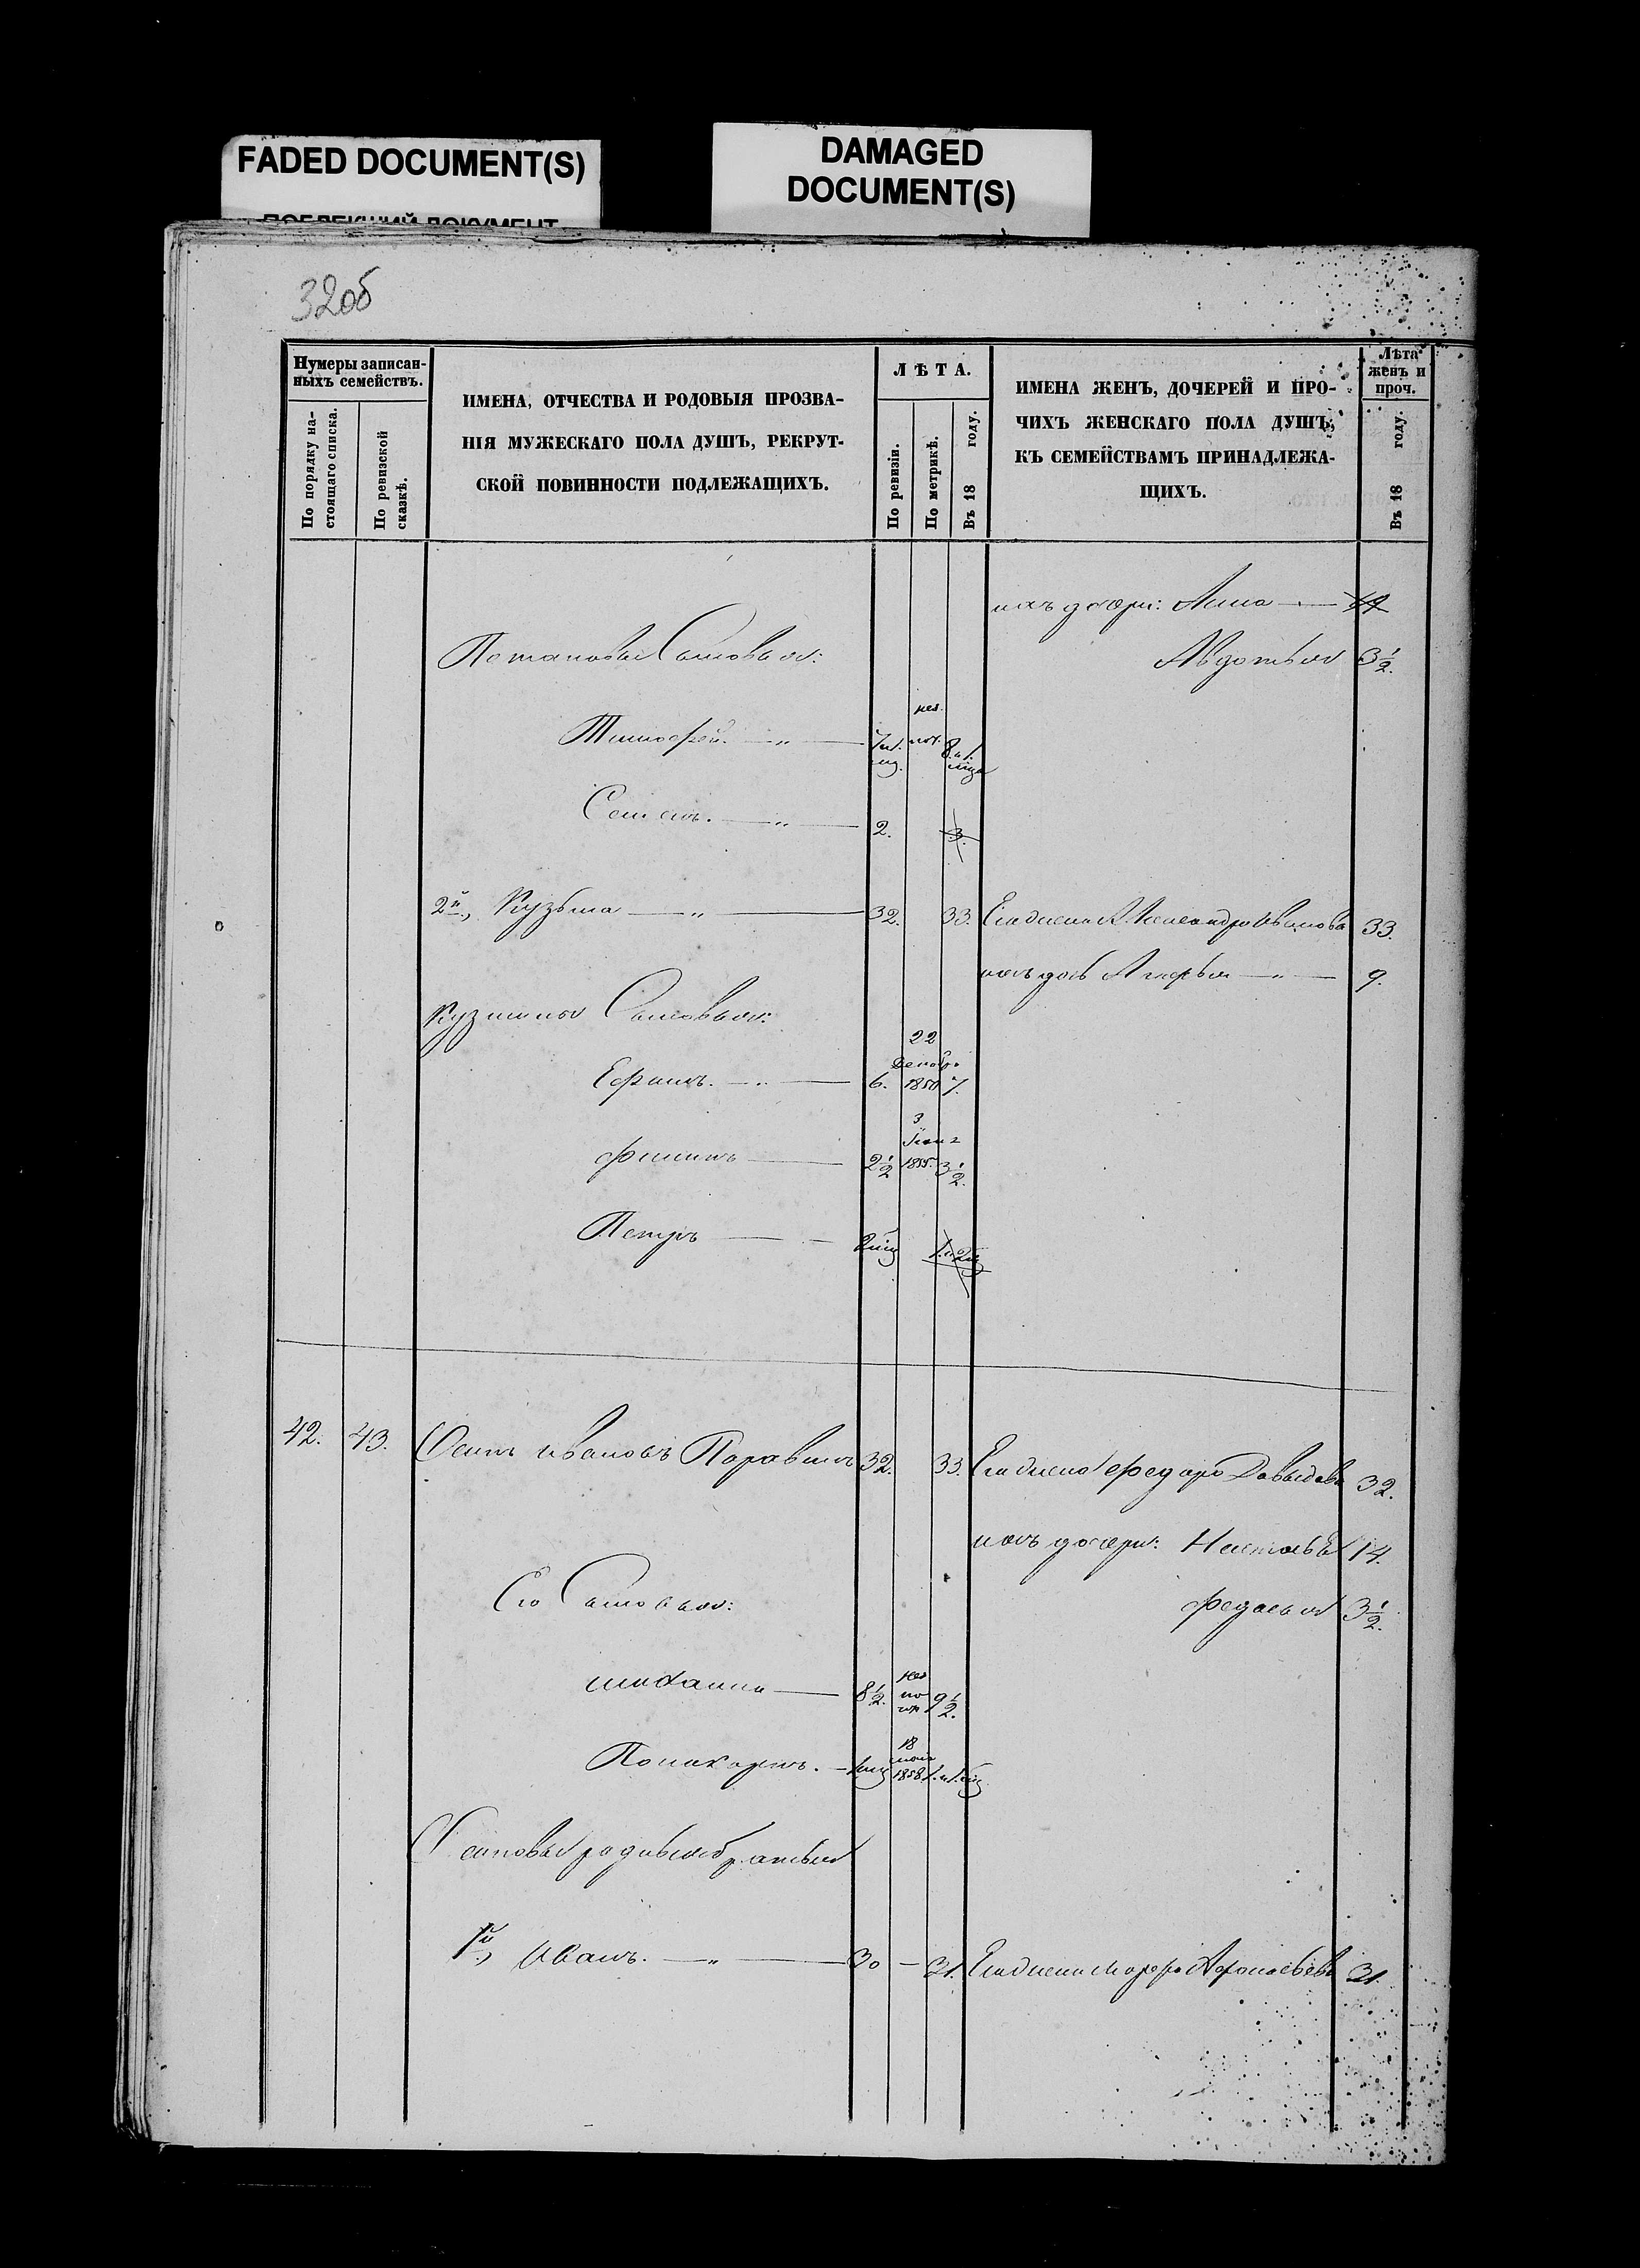 FADED DOCUMENT(S)
ПОБЛЕКШИЙ ДОКУМЕНТ
DAMAGED
DOCUMENT(S)
32об
Нумеры записан-
ныхъ семействъ.
По порядку на-
стоящаго списка.
По ревизской
сказкѣ.
ИМЕНА, ОТЧЕСТВА И РОДОВЫЯ ПРОЗВА-
НІЯ МУЖЕСКАГО ПОЛА ДУШЪ, РЕКРУТ-
СКОЙ ПОВИННОСТИ ПОДЛЕЖАЩИХЪ.
ЛѢТА.
По ревизіи.
По метрикѣ.
Въ 18 году.
ИМЕНА ЖЕНЪ, ДОЧЕРЕЙ И ПРО-
ЧИХЪ ЖЕНСКАГО ПОЛА ДУШЪ,
КЪ СЕМЕЙСТВАМЪ ПРИНАДЛЕЖА-
ЩИХЪ.
Лѣта
женъ и
проч.
Въ 18 году.
ихъ дочери: Анна
Потаповы Сыновья:
Авдотья 3½.
Тимофей
Семенъ. 2. 3.
2й, Кузьма 32. 33. Его жена Александра Иванова 33.
ихъ дочь 9.
Кузмины Сыновья:
Ефимъ. 6. 22 Декабр 1850 7.
Филипъ 2½ 3 1855. 3½.
Петръ 2 мц
42. 43. Осипъ Ивановъ 32. 33. Его жена Федора Давыдова 32.
ихъ дочери: Наталья 14.
Его Сыновья:
Федосья 3½.
Михаила 8½. не по 9½.
Поликарпъ. 18 1858
Осиповы родные братья
1й, Иванъ. 30 31. Его жена Марфа 31.